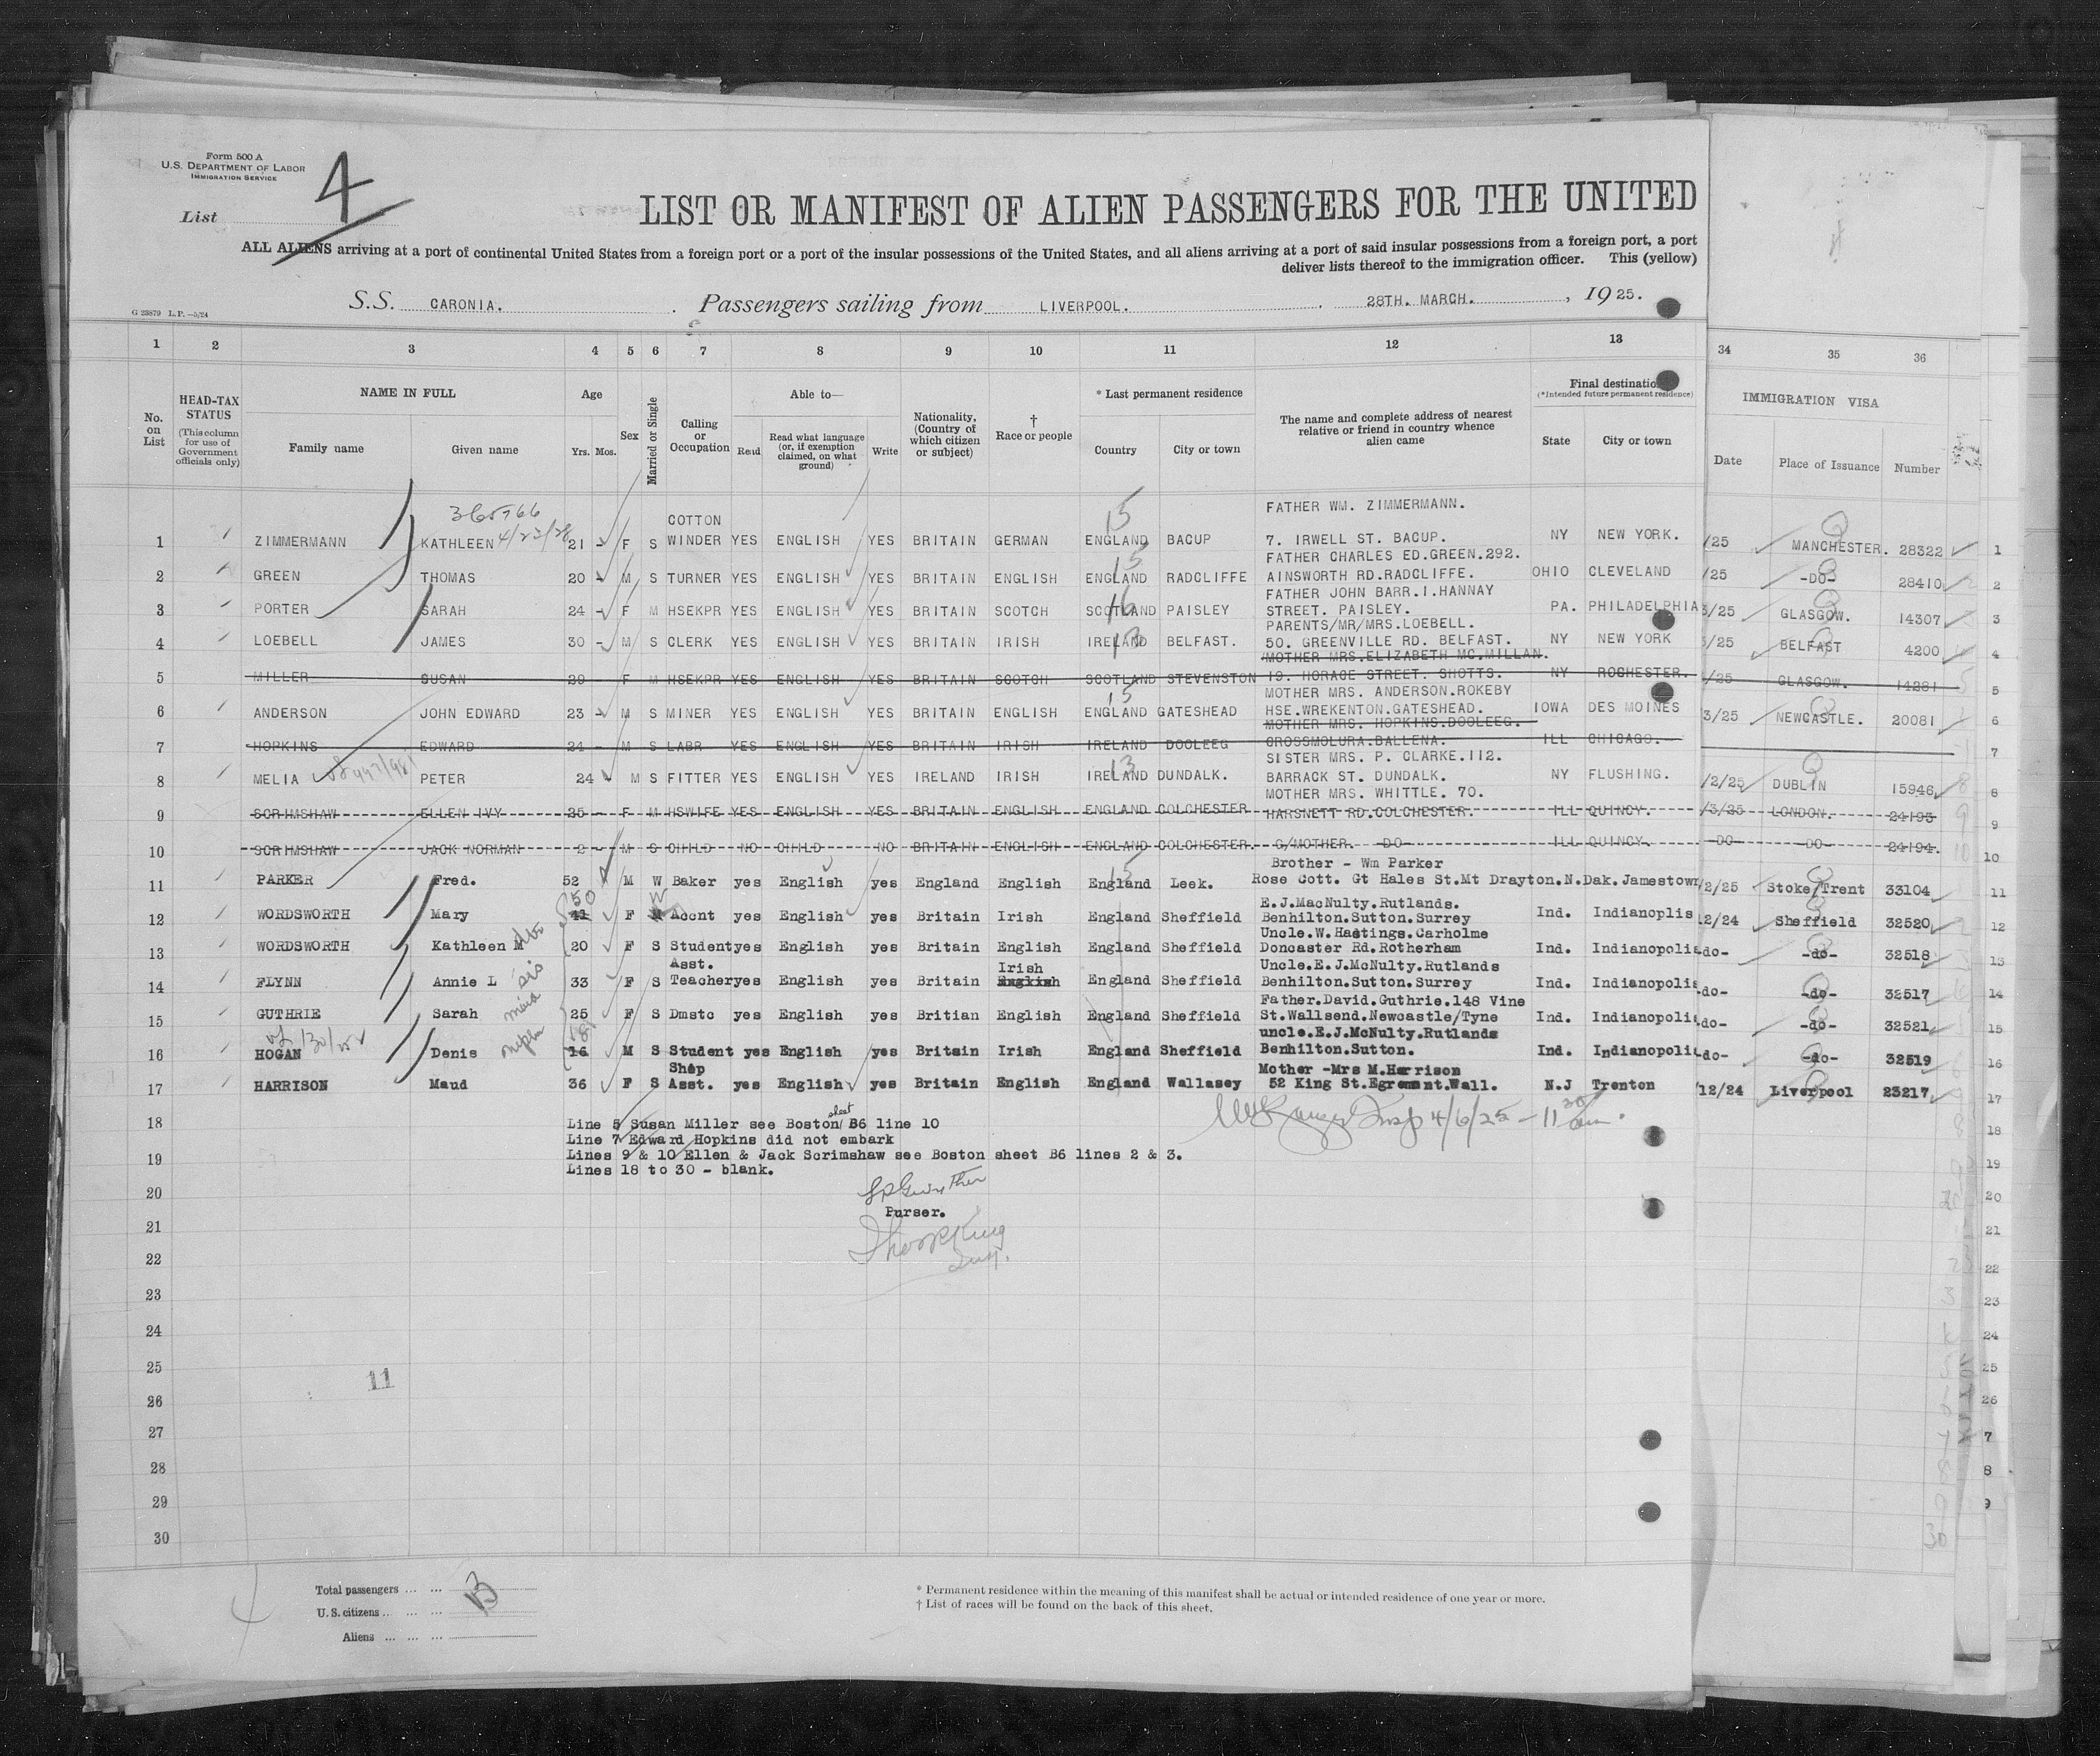 Form 500 A
U.S. DEPARTMENT OF LABOR
IMMIGRATION SERVICE
4
List
LIST OR MANIFEST OF ALIEN PASSENGERS FOR THE UNITED
ALL ALIENS arriving at a port of continental United States from a foreign port or a port of the insular possessions of the United States, and all aliens arriving at a port of said insular possessions from a foreign port, a port
deliver lists thereof to the immigration officer. This (yellow)
S.S. CARONIA. Passengers sailing from LIVERPOOL. , 28TH. MARCH. , 1925.
G 23879 L.P.—5/24
1 2 3 4 5 6 7 8 9 10 11 12 13 34 35 36
No. on List
HEAD-TAX STATUS
(This column for use of Government officials only)
NAME IN FULL
Family name Given name
Age
Yrs. Mos.
Sex
Married or Single
Calling or Occupation
Able to—
Read
Read what language (or, if exemption claimed, on what ground)
Write
Nationality, (Country of which citizen or subject)
† Race or people
* Last permanent residence
Country City or town
The name and complete address of nearest relative or friend in country whence alien came
Final destination
(*Intended future permanent residence)
State City or town
IMMIGRATION VISA
Date Place of Issuance Number
365766
4/23/38
FATHER WM. ZIMMERMANN.
COTTON
1 ZIMMERMANN KATHLEEN 21 - F S WINDER YES ENGLISH YES BRITAIN GERMAN ENGLAND BACUP 7. IRWELL ST. BACUP. NY NEW YORK. /25 MANCHESTER. 28322 1
15
FATHER CHARLES ED.GREEN.292.
2 GREEN THOMAS 20 - M S TURNER YES ENGLISH YES BRITAIN ENGLISH ENGLAND RADCLIFFE AINSWORTH RD.RADCLIFFE. OHIO CLEVELAND /25 -DO- 28410 2
15
FATHER JOHN BARR.I.HANNAY
3 PORTER SARAH 24 - F M HSEKPR YES ENGLISH YES BRITAIN SCOTCH SCOTLAND PAISLEY STREET. PAISLEY. PA. PHILADELPHIA 3/25 GLASGOW. 14307 3
16
PARENTS/MR/MRS.LOEBELL.
4 LOEBELL JAMES 30 - M S CLERK YES ENGLISH YES BRITAIN IRISH IRELAND BELFAST. 50. GREENVILLE RD. BELFAST. NY NEW YORK 3/25 BELFAST 4200 4
MOTHER MRS.ELIZABETH MC.MILLAN.
5 MILLER SUSAN 29 - F M HSEKPR YES ENGLISH YES BRITAIN SCOTCH SCOTLAND STEVENSTON 19. HORACE STREET. SHOTTS. NY ROCHESTER. /25 GLASGOW. 14281 5
15
MOTHER MRS. ANDERSON.ROKEBY
6 ANDERSON JOHN EDWARD 23 - M S MINER YES ENGLISH YES BRITAIN ENGLISH ENGLAND GATESHEAD HSE.WREKENTON.GATESHEAD. IOWA DES MOINES 3/25 NEWCASTLE. 20081 6
MOTHER MRS. HOPKINS.DOOLEEG.
7 HOPKINS EDWARD 24 - M S LABR YES ENGLISH YES BRITAIN IRISH IRELAND DOOLEEG CROSSMOLURA.BALLENA. ILL CHICAGO. 7
SISTER MRS. P. CLARKE.112.
8 MELIA PETER 24 M S FITTER YES ENGLISH YES IRELAND IRISH IRELAND DUNDALK. BARRACK ST. DUNDALK. NY FLUSHING. /2/25 DUBLIN 15946 8
13
MOTHER MRS. WHITTLE. 70.
9 SCRIMSHAW ELLEN IVY 25 - F M HSWIFE YES ENGLISH YES BRITAIN ENGLISH ENGLAND COLCHESTER HARSNETT RD.COLCHESTER. ILL QUINCY. /3/25 LONDON. 24193 9
10 SCRIMSHAW JACK NORMAN 2 - M S CHILD NO CHILD NO BRITAIN ENGLISH ENGLAND COLCHESTER. G/MOTHER. -DO- ILL QUINCY. -DO- -DO- 24194. 10
15
Brother - Wm Parker
11 PARKER Fred. 52 M W Baker yes English yes England English England Leek. Rose Cott. Gt Hales St.Mt Drayton.N.Dak.Jamestown 2/25 Stoke/Trent 33104 11
50 W
E.J.MacNulty.Rutlands.
12 WORDSWORTH Mary 41 F M Accnt yes English yes Britain Irish England Sheffield Benhilton.Sutton.Surrey Ind. Indianoplis 12/24 Sheffield 32520 12
Uncle.W.Hastings.Carholme
13 WORDSWORTH Kathleen M 20 F S Student yes English yes Britain English England Sheffield Doncaster Rd.Rotherham Ind. Indianopolis -do- -do- 32518 13
Asst. Irish Uncle.E.J.McNulty.Rutlands
14 FLYNN Annie L sis 33 F S Teacher yes English yes Britain English England Sheffield Benhilton.Sutton.Surrey Ind. Indianopolis -do- -do- 32517 14
Father.David.Guthrie.148 Vine
15 GUTHRIE Sarah maid 25 F S Dmstc yes English yes Britian English England Sheffield St.Wallsend.Newcastle/Tyne Ind. Indianopolis -do- -do- 32521 15
uncle.E.J.McNulty.Rutlands
16 HOGAN Denis 16 M S Student yes English yes Britain Irish England Sheffield Benhilton.Sutton. Ind. Indianopoli -do- -do- 32519 16
Shop Mother -Mrs M.Harrison
17 HARRISON Maud 36 F S Asst. yes English yes Britain English England Wallasey 52 King St.Egremont.Wall. N.J Trenton /12/24 Liverpool 23217 17
4/6/25 - 11 30 am.
18 Line 5 Susan Miller see Boston sheet B6 line 10 18
Line 7 Edward Hopkins did not embark
19 Lines 9 & 10 Ellen & Jack Scrimshaw see Boston sheet B6 lines 2 & 3. 19
Lines 18 to 30 - blank.
20 20
Purser.
21 21
22 22
23 23
24 24
25 11 25
26 26
27 7
28 8
29 9
30 30
Total passengers ... ... 13
U.S. citizens ... ... ...
Aliens ... ... ...
* Permanent residence within the meaning of this manifest shall be actual or intended residence of one year or more.
† List of races will be found on the back of this sheet.